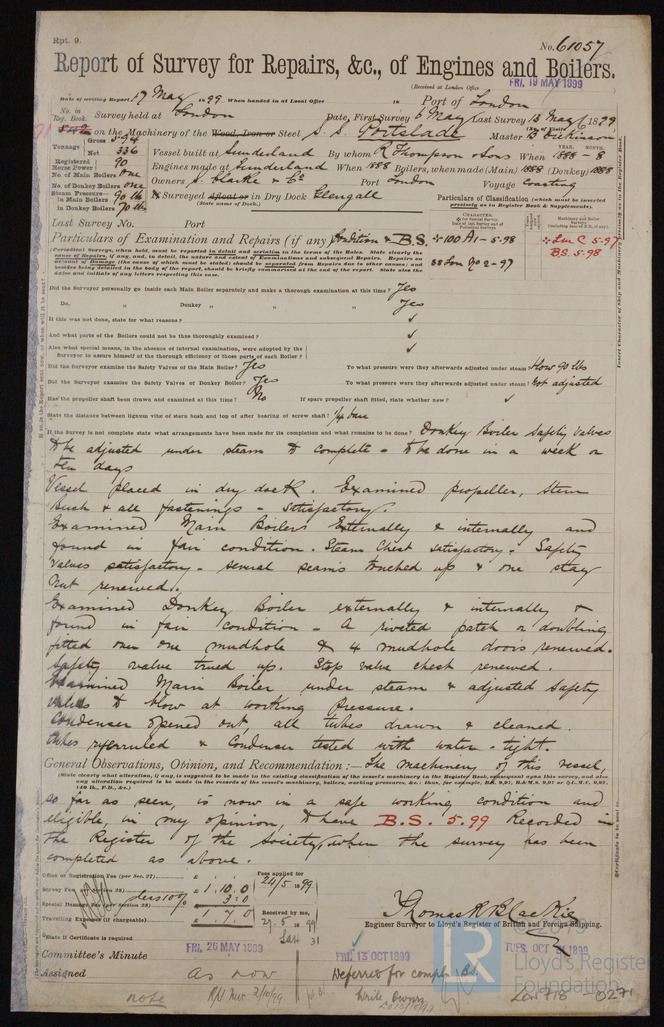 Rpt. 9.
No. 61057
Report of Survey for Repairs, &c., of Engines and Boilers.
(Received at London Office FRI. 19 MAY 1899
Date of writing Report 17 May 1899 When handed in at Local Office 18 Port of London
No. in Reg. Book. Survey held at London Date, First Survey 6 May Last Survey 13 May 1899
on the Machinery of the Wood, Iron or Steel S. S. Portslade Master B. Dickinson
Tonnage Gross 594 Net 336
Vessel built at Sunderland By whom R Thompson & Sons When 1888 - 8
Registered Horse Power 90
Engines made at Sunderland When 1888 Boilers, when made (Main) 1888 (Donkey) 1888
No. of Main Boilers One
No. of Donkey Boilers one
Owners S. Clarke & Co Port London Voyage Coasting
Steam Pressure in Main Boilers 90 lbs
in Donkey Boilers 70 lbs
If Surveyed Afloat or in Dry Dock Glengall
(State name of Dock.)
Particulars of Classification (which must be inserted precisely as in Register Book & Supplements).
Last Survey No. Port
Particulars of Examination and Repairs (if any) Condition & B.S.
100 A1 - 5.98
SS Lon No 2 - 97
Lmc 5.97
BS. 5.98
Did the Surveyor personally go inside each Main Boiler separately and make a thorough examination at this time? Yes
Do. Donkey " " " " Yes
If this was not done, state for what reasons? ✓
And what parts of the Boilers could not be thus thoroughly examined? ✓
Also what special means, in the absence of internal examination, were adopted by the Surveyor to assure himself of the thorough efficiency of those parts of each Boiler? ✓
Did the Surveyor examine the Safety Valves of the Main Boiler? Yes To what pressure were they afterwards adjusted under steam? Blow 90 lbs
Did the Surveyor examine the Safety Valves of Donkey Boiler? Yes To what pressure were they afterwards adjusted under steam? Not adjusted
Has the propeller shaft been drawn and examined at this time? No If spare propeller shaft fitted, state whether new? ✓
State the distance between lignum vitæ of stern bush and top of after bearing of screw shaft?
If the Survey is not complete state what arrangements have been made for its completion and what remains to be done? Donkey Boiler Safety Valves
to be adjusted under steam to complete - to be done in a week or
ten days
Vessel placed in dry dock. Examined propeller, stern
bush & all fastenings - satisfactory.
Examined Main Boilers externally & internally and
found in fair condition. Steam Chest satisfactory. Safety
Valves satisfactory - several seams touched up & one stay
nut renewed.
Examined Donkey Boiler externally & internally &
found in fair condition - A riveted patch or doubling
fitted on one mudhole & 4 mudhole doors renewed.
Safety valve trued up. Stop valve chest renewed.
Examined Main Boiler under steam & adjusted Safety
valves to blow at working pressure.
Condenser opened out, all tubes drawn & cleaned.
tubes referruled & Condenser tested with water - tight.
General Observations, Opinion, and Recommendation:— The machinery of this vessel,
so far as seen, is now in a safe working condition and
eligible, in my opinion, to have B.S. 5.99 Recorded in
the Register of the Society, when the survey has been
completed as above.
Office or Registration Fee (per Sec. 27)
Fees applied for 24/5 1899
Survey Fee £ 1.10.0
less 10% 3.0
Special Damage Fee (per Section 28)
£ 1.7.0
Travelling Expenses (if chargeable)
Received by me, 27.5.1899
State if Certificate is required
Thomas R Blackie
Engineer Surveyor to Lloyd's Register of British and Foreign Shipping.
Committee's Minute FRI. 26 MAY 1899 FRI. 13 OCT 1899 TUES. OCT 1899
Assigned as now Deferred for compln BS
note
Write Owners
Lloyd's Register
Foundation
Lon 718 - 0271